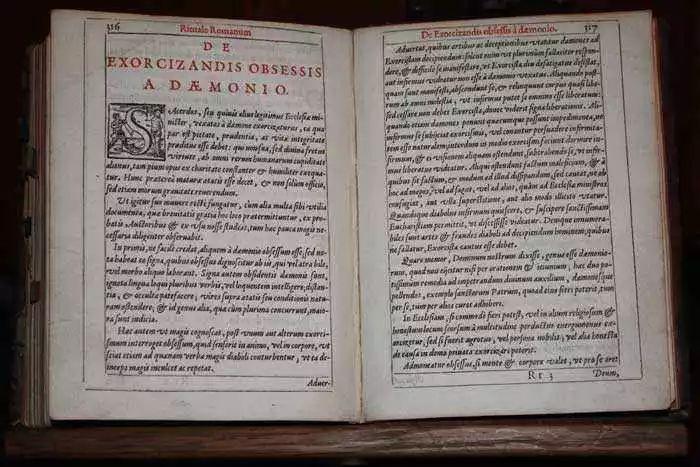 316 Rituale Romanum
DE
EXORCIZANDIS OBSESSIS
A DÆMONIO.
SAcerdos, seu quiuis alius legitimus Ecclesiæ mi-
nister, vexatos à dæmone exorcizaturus, ea qua
par est pietate, prudentia, ac vitæ integritate
præditus esse debet: qui non sua, sed diuina fretus
virtute, ab omni rerum humanarum cupiditate
alienus, tam pium opus ex charitate constanter & humiliter exequa-
tur. Hunc præterea maturæ ætatis esse decet, & non solùm officio,
sed etiam morum grauitate reuerendum.
Vt igitur suo munere rectè fungatur, cùm alia multa sibi vtilia
documenta, quæ breuitatis gratia hoc loco prætermittuntur, ex pro-
batis Auctoribus & ex vsu nosse studeat, tum hæc pauca magis ne-
cessaria diligenter obseruabit.
In primis, ne facilè credat, aliquem à dæmonio obsessum esse, sed
nota habeat ea signa, quibus obsessus dignoscitur ab iis, qui vel atra bile,
vel morbo aliquo laborant. Signa autem obsidentis dæmonis sunt,
ignota lingua loqui pluribus verbis, vel loquentem intelligere; distan-
tia, & occulta patefacere; vires supra ætatis seu conditionis natu-
ram ostendere; & id genus alia, quæ cùm plurima concurrunt, maio-
ra sunt indicia.
Hæc autem vt magis cognoscat, post vnum aut alterum exorci-
smum interroget obsessum, quid senserit in animo, vel in corpore, vt
sciat etiam ad quænam verba magis diaboli conturbentur, vt ea de-
inceps magis inculcet ac repetat.
Aduer-
De Exorcizandis obsessis à dæmonio. 317
Aduertat, quibus artibus ac deceptionibus vtantur dæmones ad
Exorcistam decipiendum: solent enim vt plurimùm fallaciter respon-
dere, & difficilè se manifestare, vt Exorcista diu defatigatus desistat,
aut infirmus videatur non esse à dæmonio vexatus. Aliquando post-
quam sunt manifesti, abscondunt se, & relinquunt corpus quasi libe-
rum ab omni molestia, vt infirmus putet se omnino esse liberatum:
sed cessare non debet Exorcista, donec viderit signa liberationis. Ali-
quando etiam dæmones ponunt quæcumque possunt impedimenta, ne
infirmus se subijciat exorcismis, vel conantur persuadere infirmita-
tem esse naturalem; interdum in medio exorcismi faciunt dormire in-
firmum, & ei visionem aliquam ostendunt, subtrahendo se, vt infir-
mus liberatus videatur. Aliqui ostendunt factum maleficium, & à
quibus sit factum, & modum ad illud dissipandum, sed caueat, ne ob
hoc ad magos, vel ad sagas, vel ad alios, quàm ad Ecclesiæ ministros
confugiat, aut vlla superstitione, aut alio modo illicito vtatur.
Quandoque diabolus infirmum quiescere, & suscipere sanctissimam
Eucharistiam permittit, vt discessisse videatur. Denique innumerabi-
biles sunt artes & fraudes diaboli ad decipiendum hominem; quibus
ne fallatur, Exorcista cautus esse debet.
Quare memor, Dominum nostrum dixisse, genus esse dæmonio-
rum, quod non eijcitur nisi per orationem & ieiunium, hæc duo po-
tissimum remedia ad impetrandum diuinum auxilium, dæmonesque
pellendos, exemplo sanctorum Patrum, quoad eius fieri poterit, tum
per se, tum per alios curet adhibere.
In Ecclesiam, si commodè fieri potest, vel in alium religiosum &
honestum locum seorsum à multitudine perductus energumenus ex-
orcizetur, sed si fuerit ægrotus, vel persona nobilis, vel alia honesta
de causa in domo priuata exorcizari poterit.
Admoneatur obsessus, si mente & corpore valet, vt pro se oret
Rr 3 Deum,